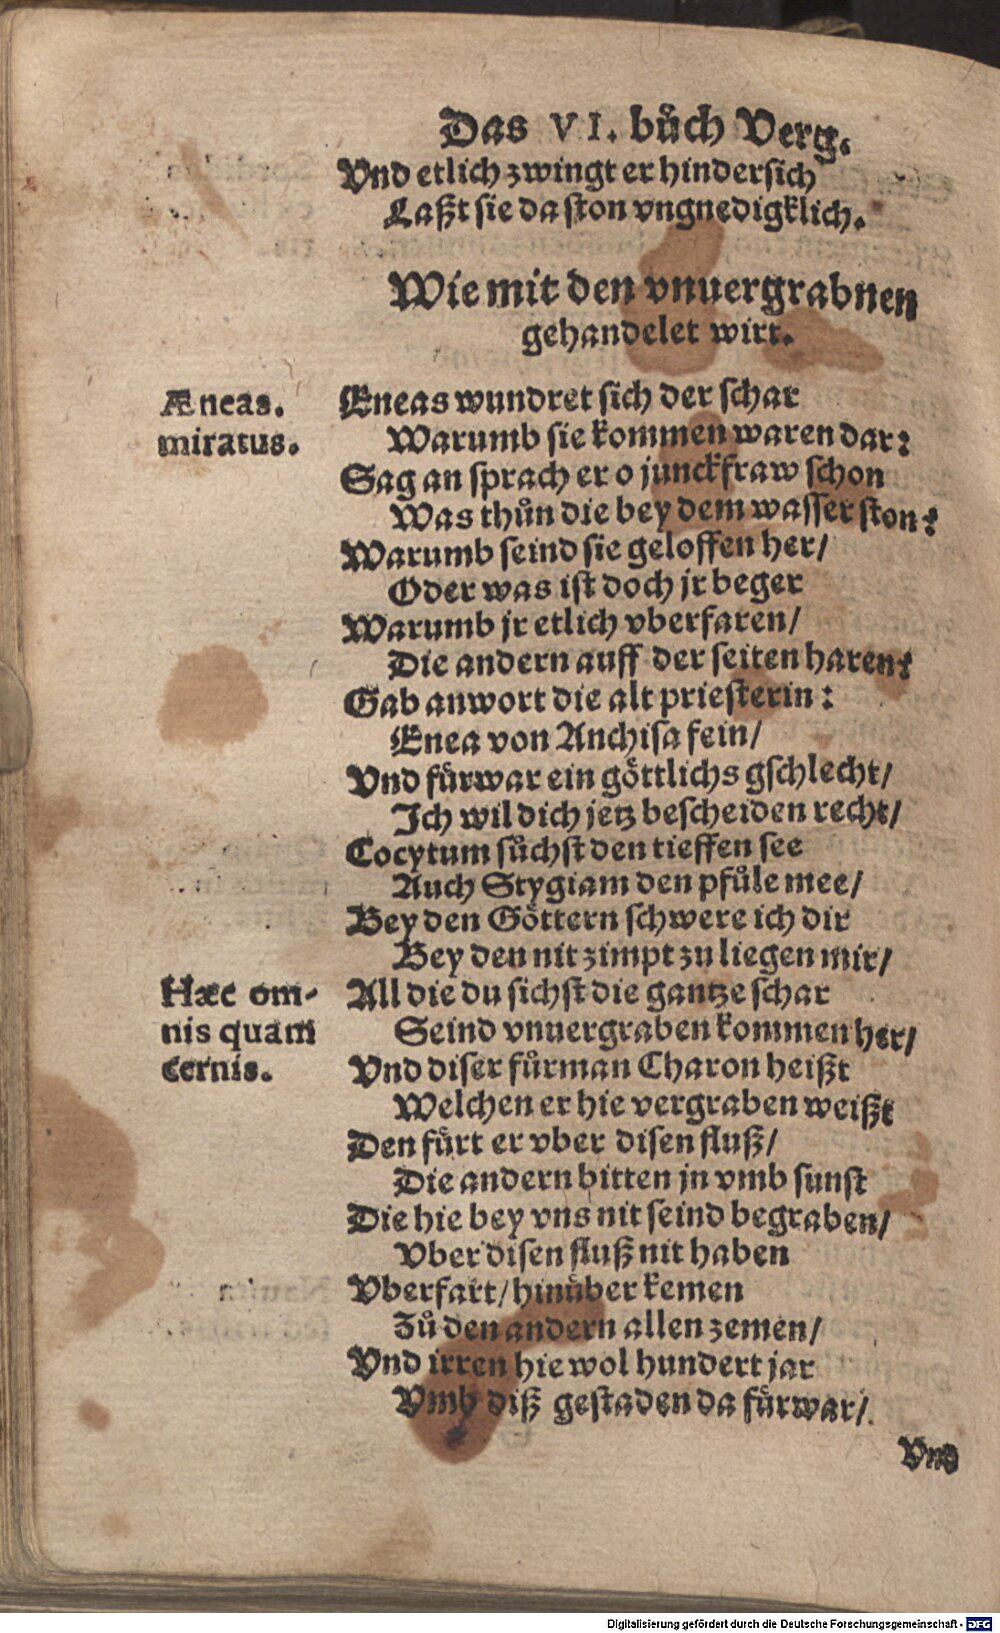 Das VI. bůch Verg.
Vnd etlich zwingt er hindersich
Laßt sie da ston vngnedigklich.
Wie mit den vnuergrabnen
gehandelet wirt.
Æneas.
miratus.
Eneas wundret sich der schar
Warumb sie kommen waren dar?
Sag an sprach er o junckfraw schon
Was thůn die bey dem wasser ston?
Warumb seind sie geloffen her/
Oder was ist doch jr beger
Warumb jr etlich vberfaren/
Die andern auff der seiten haren?
Gab anwort die alt priesterin:
Enea von Anchisa fein/
Vnd fürwar ein göttlichs gschlecht/
Ich wil dich jetz bescheiden recht/
Cocytum sůchst den tieffen see
Auch Stygiam den pfůle mee/
Bey den Göttern schwere ich dir
Bey den nit zimpt zu liegen mir/
Hæc om-
nis quam
cernis.
All die du sichst die gantze schar
Seind vnuergraben kommen her/
Vnd diser fůrman Charon heißt
Welchen er hie vergraben weißt
Den fürt er vber disen fluß/
Die andern bitten jn vmb sunst
Die hie bey vns nit seind begraben/
Vber disen fluß nit haben
Vberfart/ hinüber kemen
Zů den andern allen zemen/
Vnd irren hie wol hundert jar
Vmb diß gestaden da fürwar/
Vnd
Digitalisierung gefördert durch die Deutsche Forschungsgemeinschaft - DFG